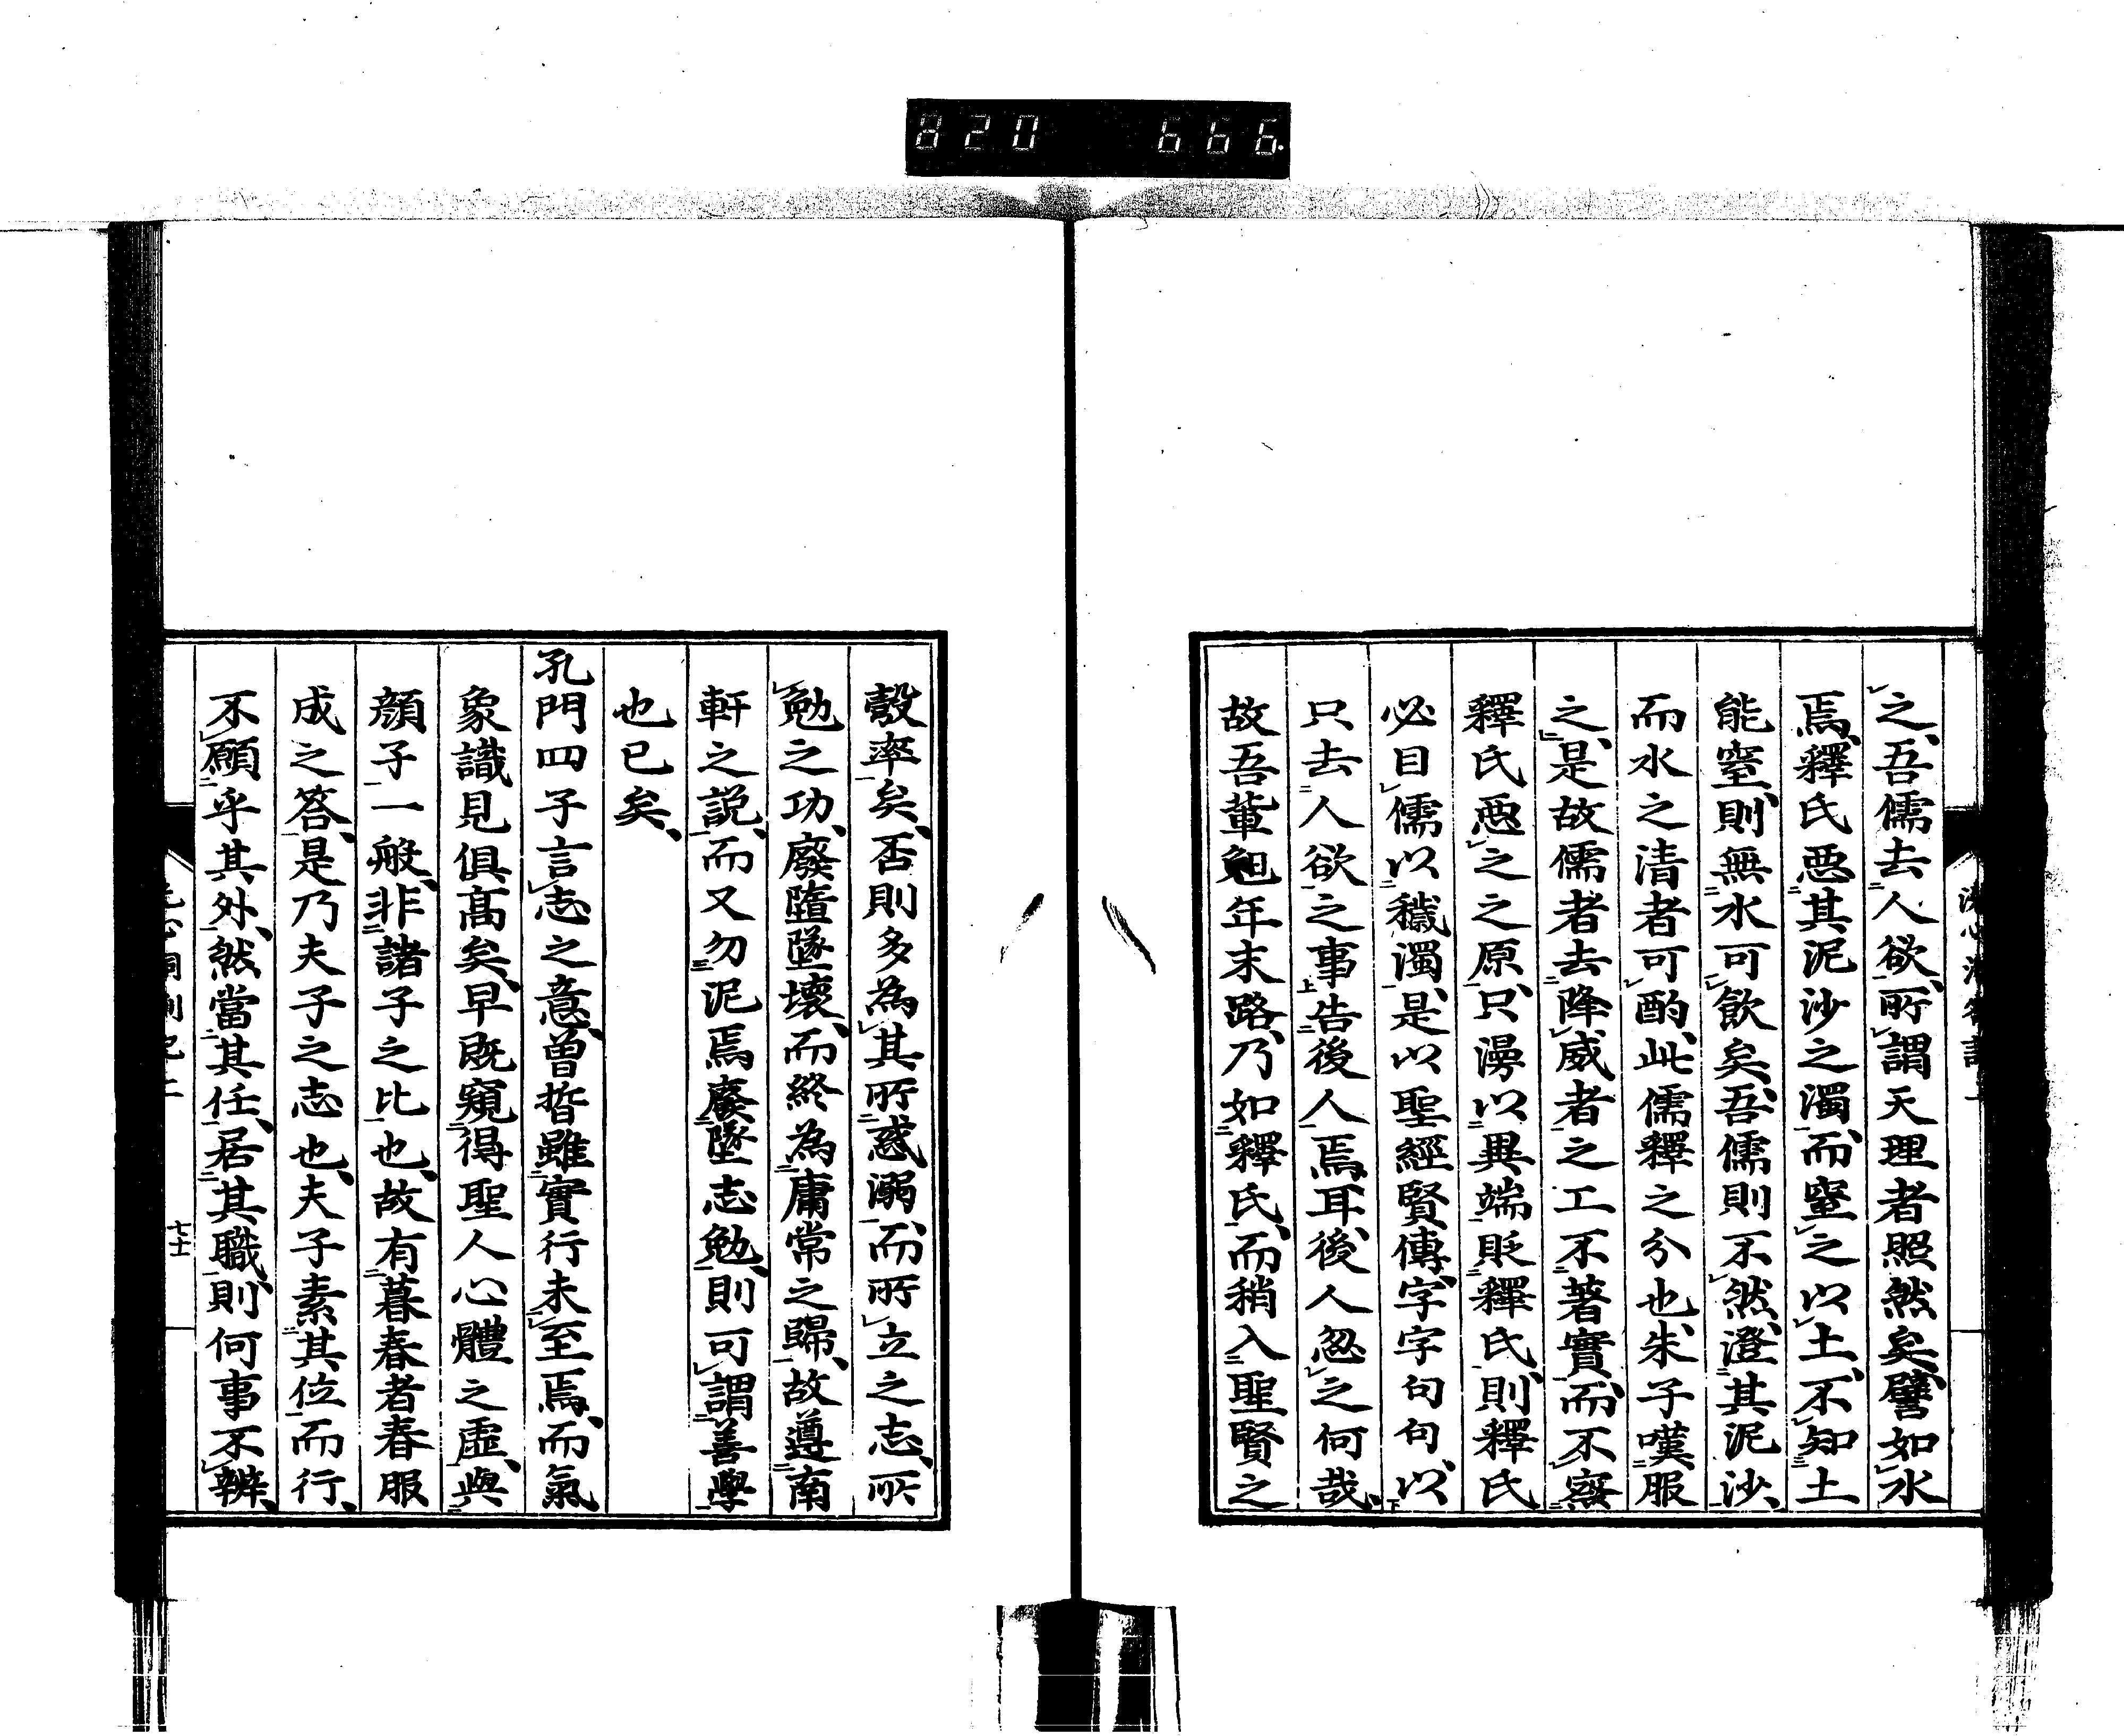 820 666.
之、吾儒去人欲、所謂天理者照然矣、譬如水
焉、釋氏惡其泥沙之濁、而窒之以土、不知土
能窒、則無水可飲矣、吾儒則不然、澄其泥沙、
而水之清者可酌、此儒釋之分也、朱子嘆服
之、是故儒者去降威者之工不著實、而不察
釋氏惡之之原、只漫以異端貶釋氏、則釋氏
必目儒以穢濁、是以聖經賢傳、字字句句、以
只去人欲之事告後人焉耳、後人忽之何哉、
故吾輩年末路、乃如釋氏、而稍入聖賢之
彀率矣、否則多為其所惑溺、而所立之志、所
勉之功、廢墮墜壞、而終為庸常之歸、故遵南
軒之説、而又勿泥焉廢墜志勉、則可謂善學
也已矣、
孔門四子言志之意、曾晳雖實行未至焉、而氣
象識見俱高矣、早既窺得聖人心體之虛、與
顏子一般、非諸子之比也、故有暮春者春服
成之答、是乃夫子之志也、夫子素其位而行、
不願乎其外、然當其任、居其職、則何事不辨、